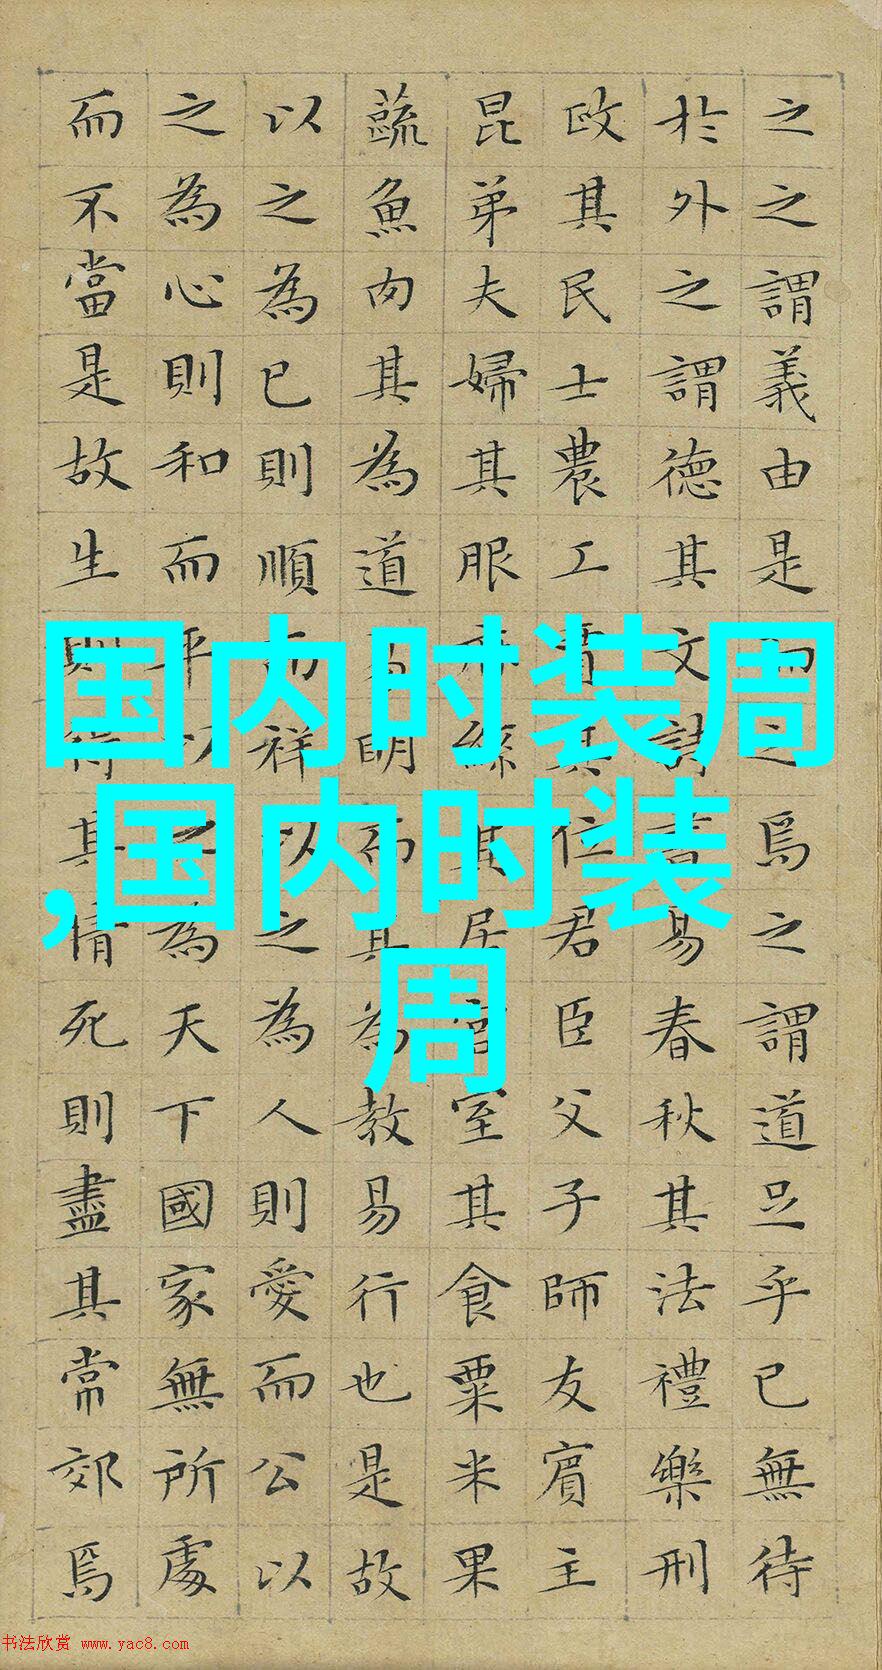 国内时装周
,国内时装
周
之之謂義由是而之焉之謂道足乎已無待
於外之謂德其文詩書易春秋其法禮樂刑
政其民士農工賈其位君臣父子師友賓主
昆弟夫婦其服麻絲其居宮室其食粟米果
蔬魚肉其為道易明而其為教易行也是故
以之為已則順而祥以之為人則愛而公以
之為心則和而平以之為天下國家無所處
而不當是故生則得其情死則盡其常郊焉
书法欣赏 www.yac8.com